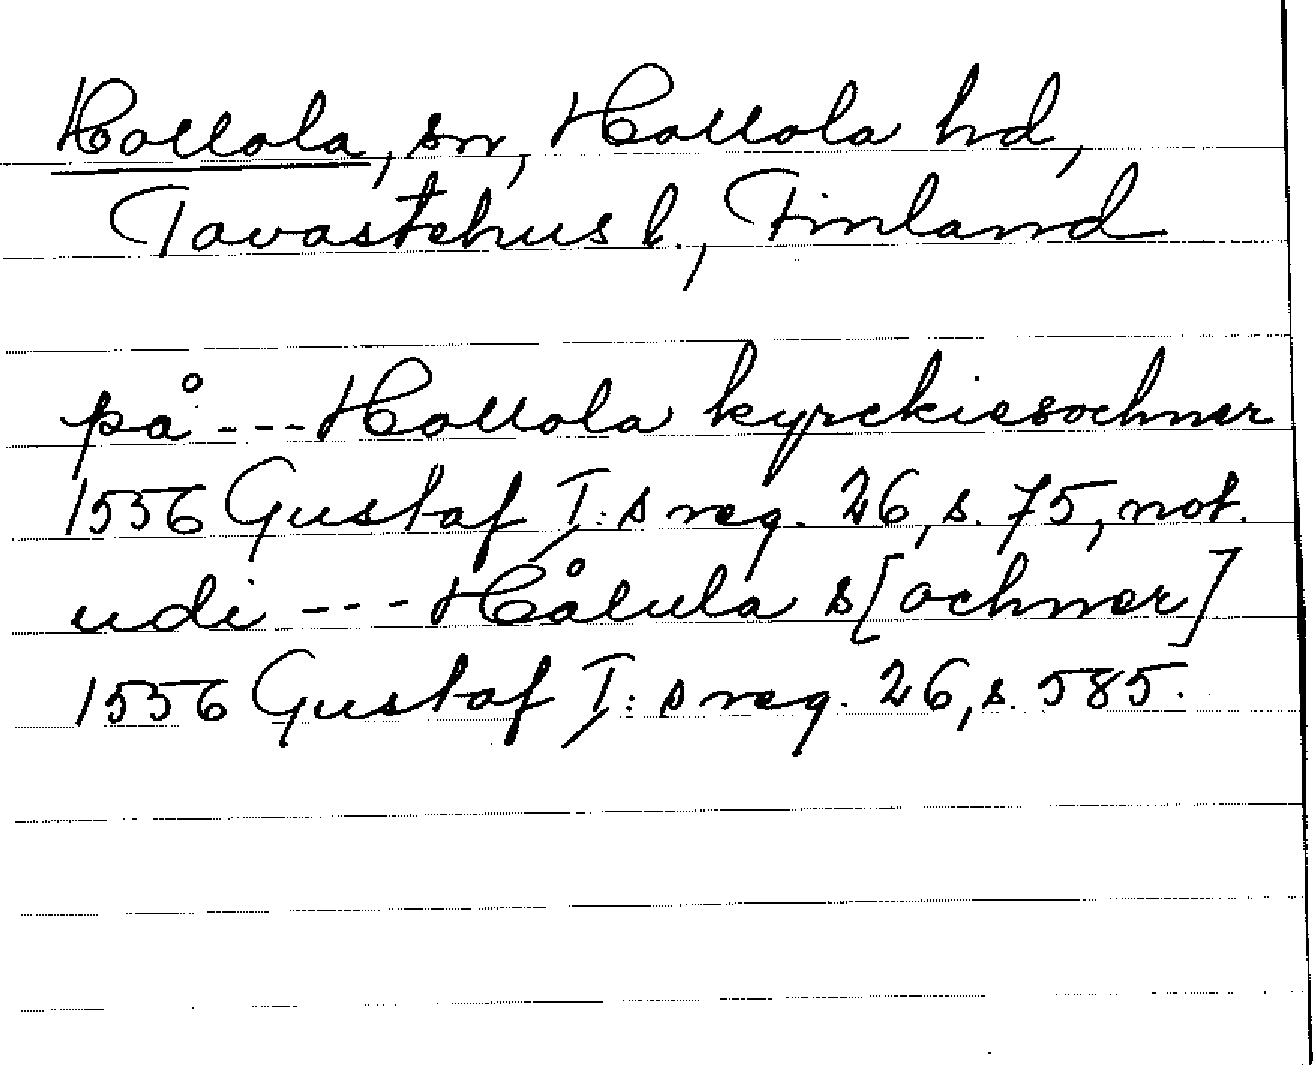 Hollola, sn, Hollola hd,
Tavastehus l., Finland
på --- Hollola kyrckiesochner
1556 Gustaf I:s reg. 26, s. 75, not.
udi --- Hålula s[ochner]
1556 Gustaf I:s reg. 26, s. 585.